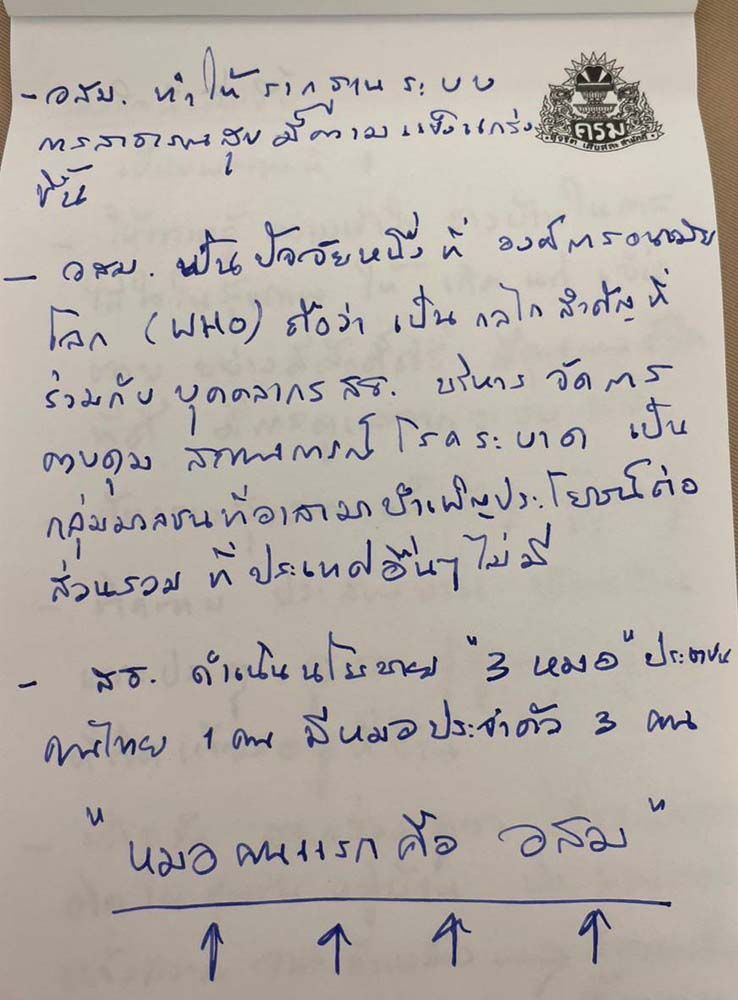 - อสม. ทำให้รากฐานระบบ
การสาธารณสุขมีความแข็งแกร่ง
ขึ้น
ครม
- อสม. เป็นปัจจัยหนึ่งที่ องค์การอนามัย
โลก (WHO) ถือว่า เป็นกลไกสำคัญที่
ร่วมกับ บุคคลากร สธ. บริหาร จัดการ
ควบคุม สถานการณ์ โรคระบาด เป็น
กลุ่มมวลชนที่อาสามาบำเพ็ญประโยชน์ต่อ
ส่วนรวม ที่ประเทศอื่นๆ ไม่มี
- สธ. ดำเนินนโยบาย "3 หมอ" ประชาชน
คนไทย 1 คน มีหมอประจำตัว 3 คน
"หมอคนแรกคือ อสม"